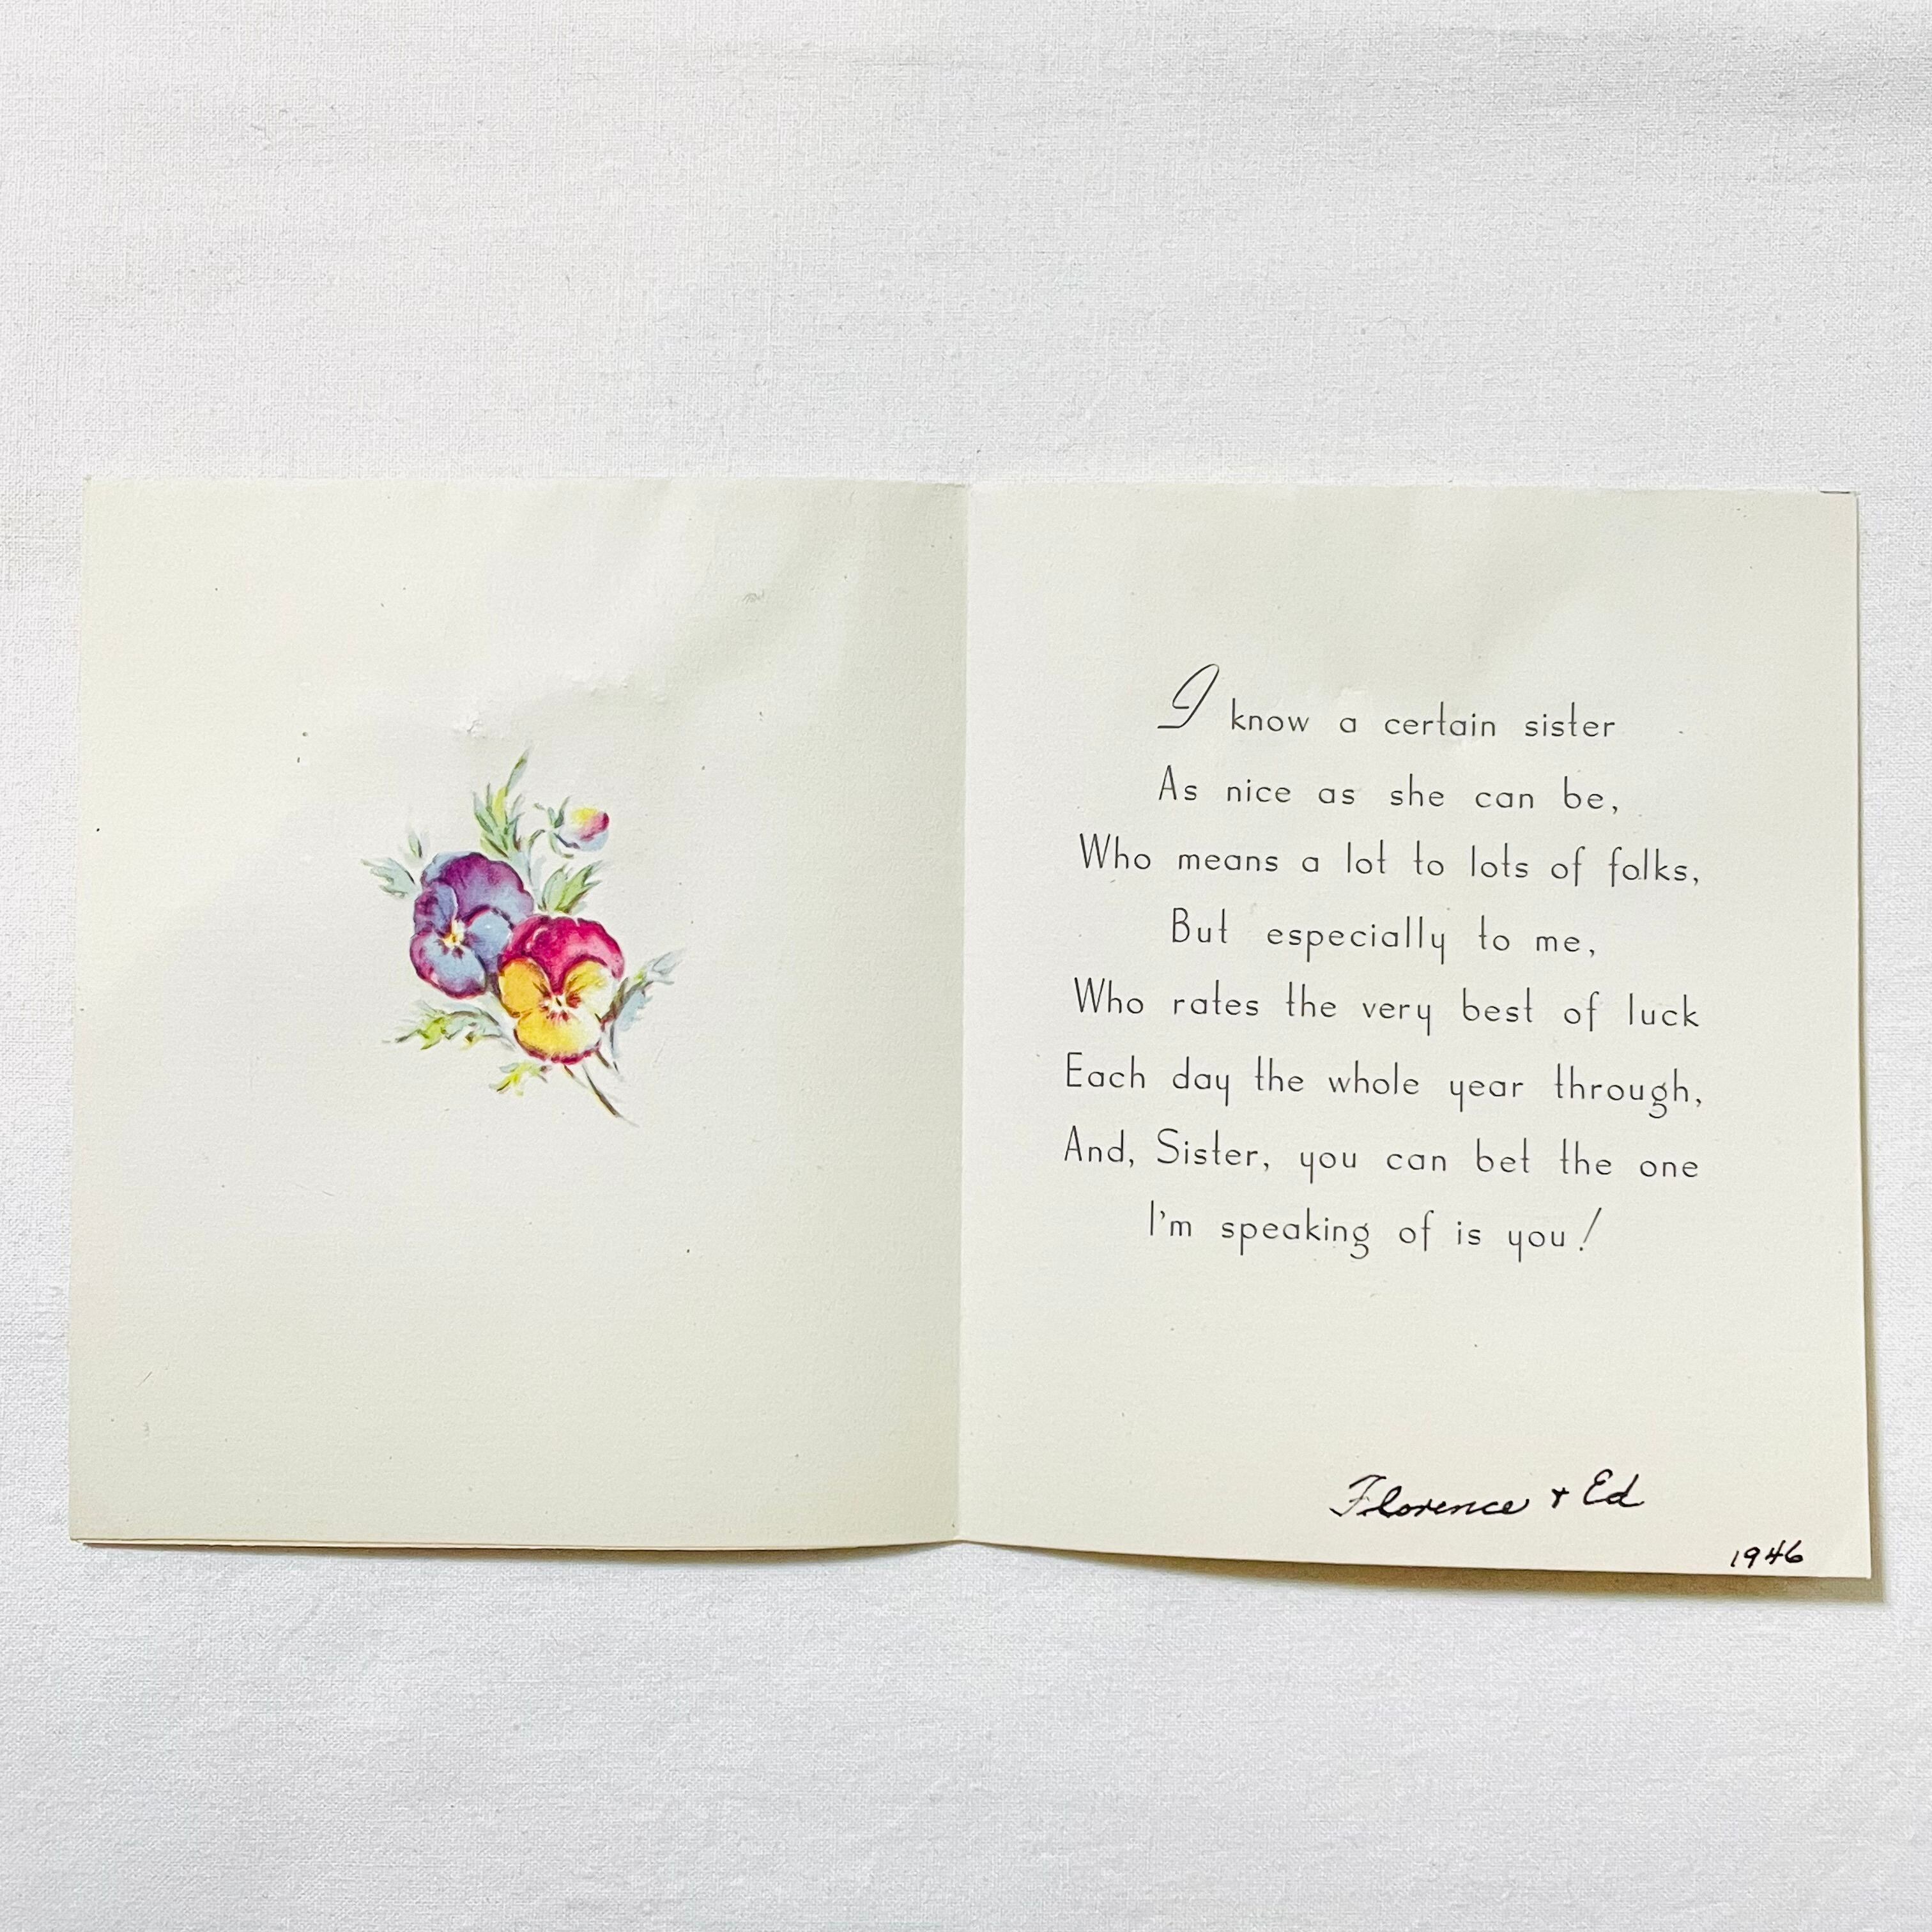 I know a certain sister
As nice as she can be,
Who means a lot to lots of folks,
But especially to me,
Who rates the very best of luck
Each day the whole year through,
And, Sister, you can bet the one
I'm speaking of is you!
Florence + Ed
1946